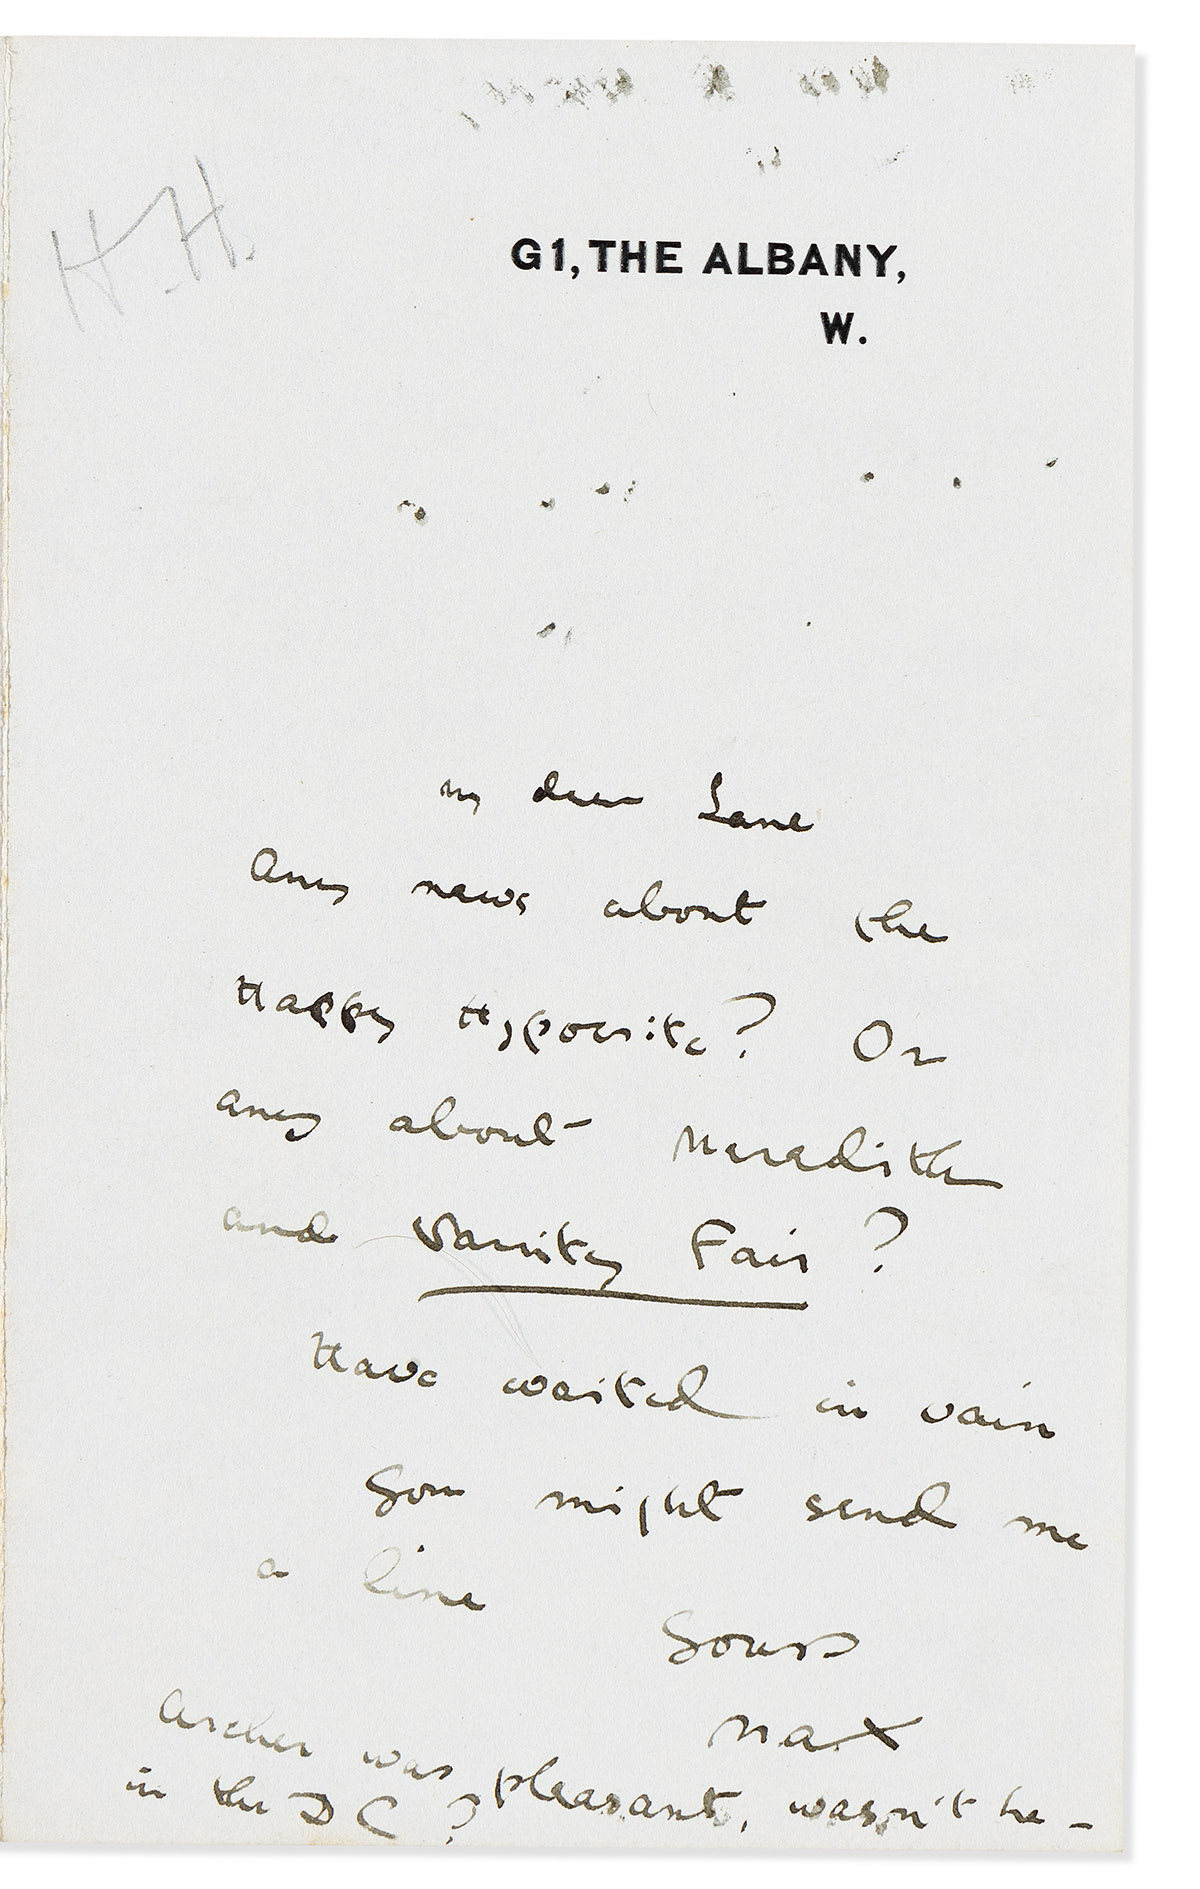 H.H.
G1, THE ALBANY,
W.
My dear Lane
Any news about the
Happy Hypocrite? Or
any about Meredith
and Vanity Fair?
Have waited in vain
You might send me
a line
Yours
Max
Archer was pleasant, wasn't he –
in the DC?